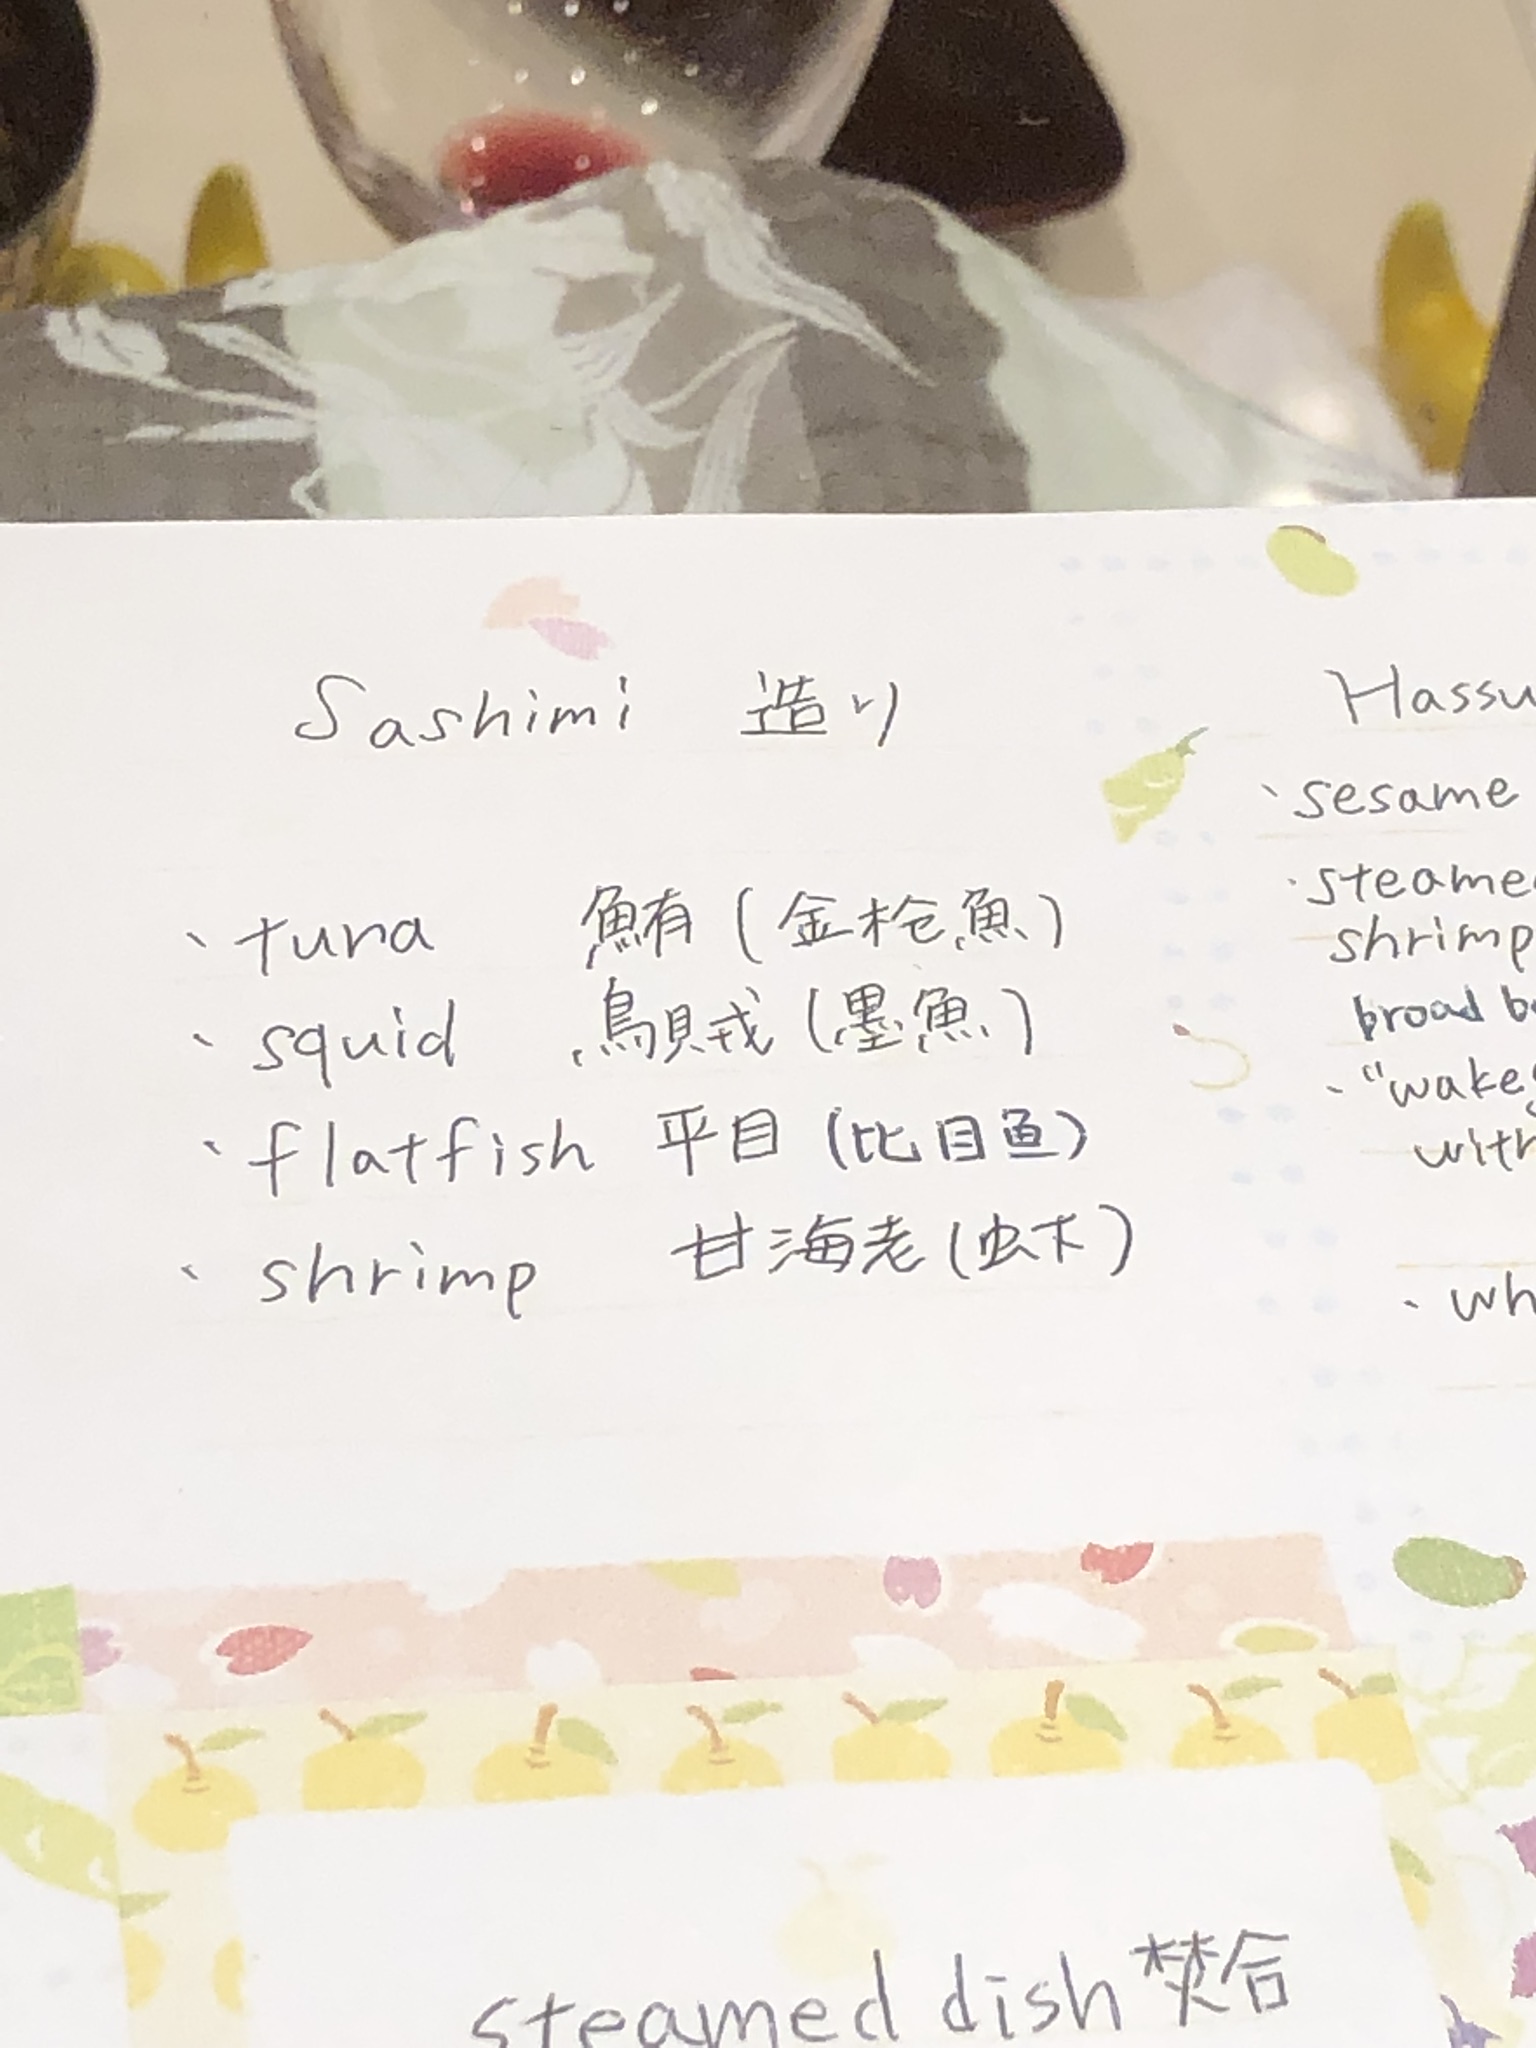 Sashimi 造り
、tuna 鮪(金枪魚)
、squid 烏賊(墨魚)
、flatfish 平目(比目魚)
、shrimp 甘海老(虾)
Hassu
、sesame
・steame
shrimp
broad b
、"wake
with
・wh
steamed dish 焚合